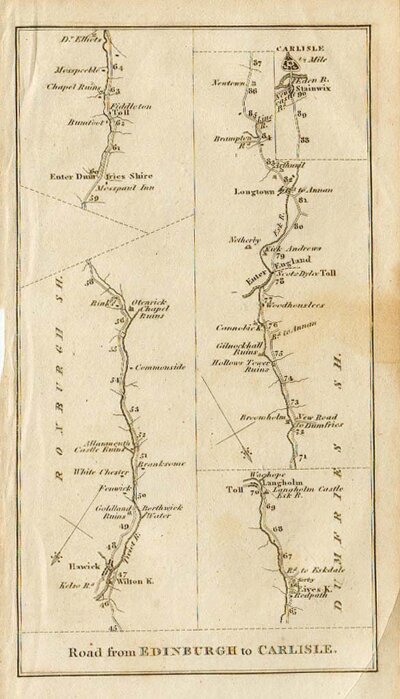 Dr. Elliots
64
Mosspeeble
Chapel Ruins
63
Fiddleton
Toll
62
Bundoot
61
60
Enter Dumfries Shire
Mosspaul Inn
59
58
Rink
Oterrick
Chapel
Ruins
56
55
Commonside
54
53
52
Allanmouth
Castle Ruins
51
Branksome
White Chester
Fenwick
50
Goldland
Ruins
Borthwick
Water
49
Tiviot R.
48
Hawick
47
Wilton K.
Kelso Rd.
46
45
ROXBURGH SH.
CARLISLE
1/4 Mile
Eden R.
Stainwix
90
89
88
87
Newtown
86
85
Line
R.
84
Brampton
Rd.
83
Arthuret
82
Longtown
to Annan
81
Esk R.
80
Netherby
Kirk Andrews
79
Enter England
Scots Dyke Toll
78
77
Woodhouslees
Cannobie
76
Rd. to Annan
Gilnockhall
Ruins
75
Hollows Tower
Ruins
74
73
Broomholm
New Road
to Dumfries
72
71
Wachope
Langholm
Toll
70
Langholm Castle
Esk R.
69
68
67
Rd. to Eskdale
Ewes K.
Redpath
65
DUMFRIES SH.
Road from EDINBURGH to CARLISLE.